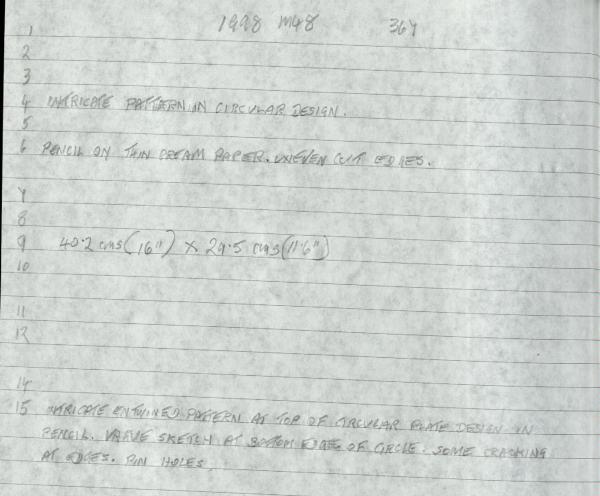 1998 M48 364
1
2
3
4 INTRICATE PATTERN IN CIRCULAR DESIGN.
5
6 PENCIL ON THIN CREAM PAPER. UNEVEN CUT EDGES.
7
8
9 40.2 cms (16") X 29.5 cms (11.6")
10
11
12
14
15 INTRICATE ENTWINED PATTERN AT TOP OF CIRCULAR PLATE DESIGN IN
PENCIL. VAGUE SKETCH AT BOTTOM EDGE OF CIRCLE. SOME CREASING
AT EDGES. PIN HOLES.